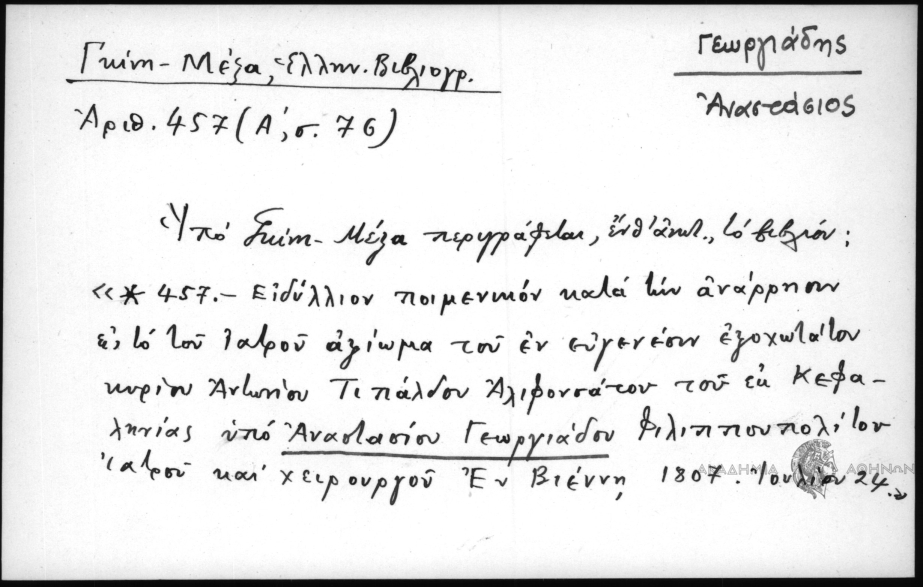 Γκίνη - Μέξα, Ἑλλην. Βιβλιογρ.
Ἀριθ. 457 (Α΄, σ. 76)
Γεωργιάδης
Ἀναστάσιος
Ὑπό Γκίνη - Μέξα περιγράφεται, ἔνθ' ἀνωτ., τό βιβλίον:
«* 457. - Εἰδύλλιον ποιμενικόν κατά τήν ἀνάρρησιν
εἰς τό τοῦ ἰατροῦ ἀξίωμα τοῦ ἐν εὐγενέσιν ἐξοχωτάτου
κυρίου Ἀντωνίου Τιπάλδου Ἀλιφονσάτου τοῦ ἐκ Κεφα-
ληνίας ὑπό Ἀναστασίου Γεωργιάδου Φιλιππουπολίτου
ἰατροῦ καί χειρουργοῦ Ἐν Βιέννῃ 1807. Ἰουλίου 24.»
ΑΚΑΔΗΜΙΑ ΑΘΗΝΩΝ